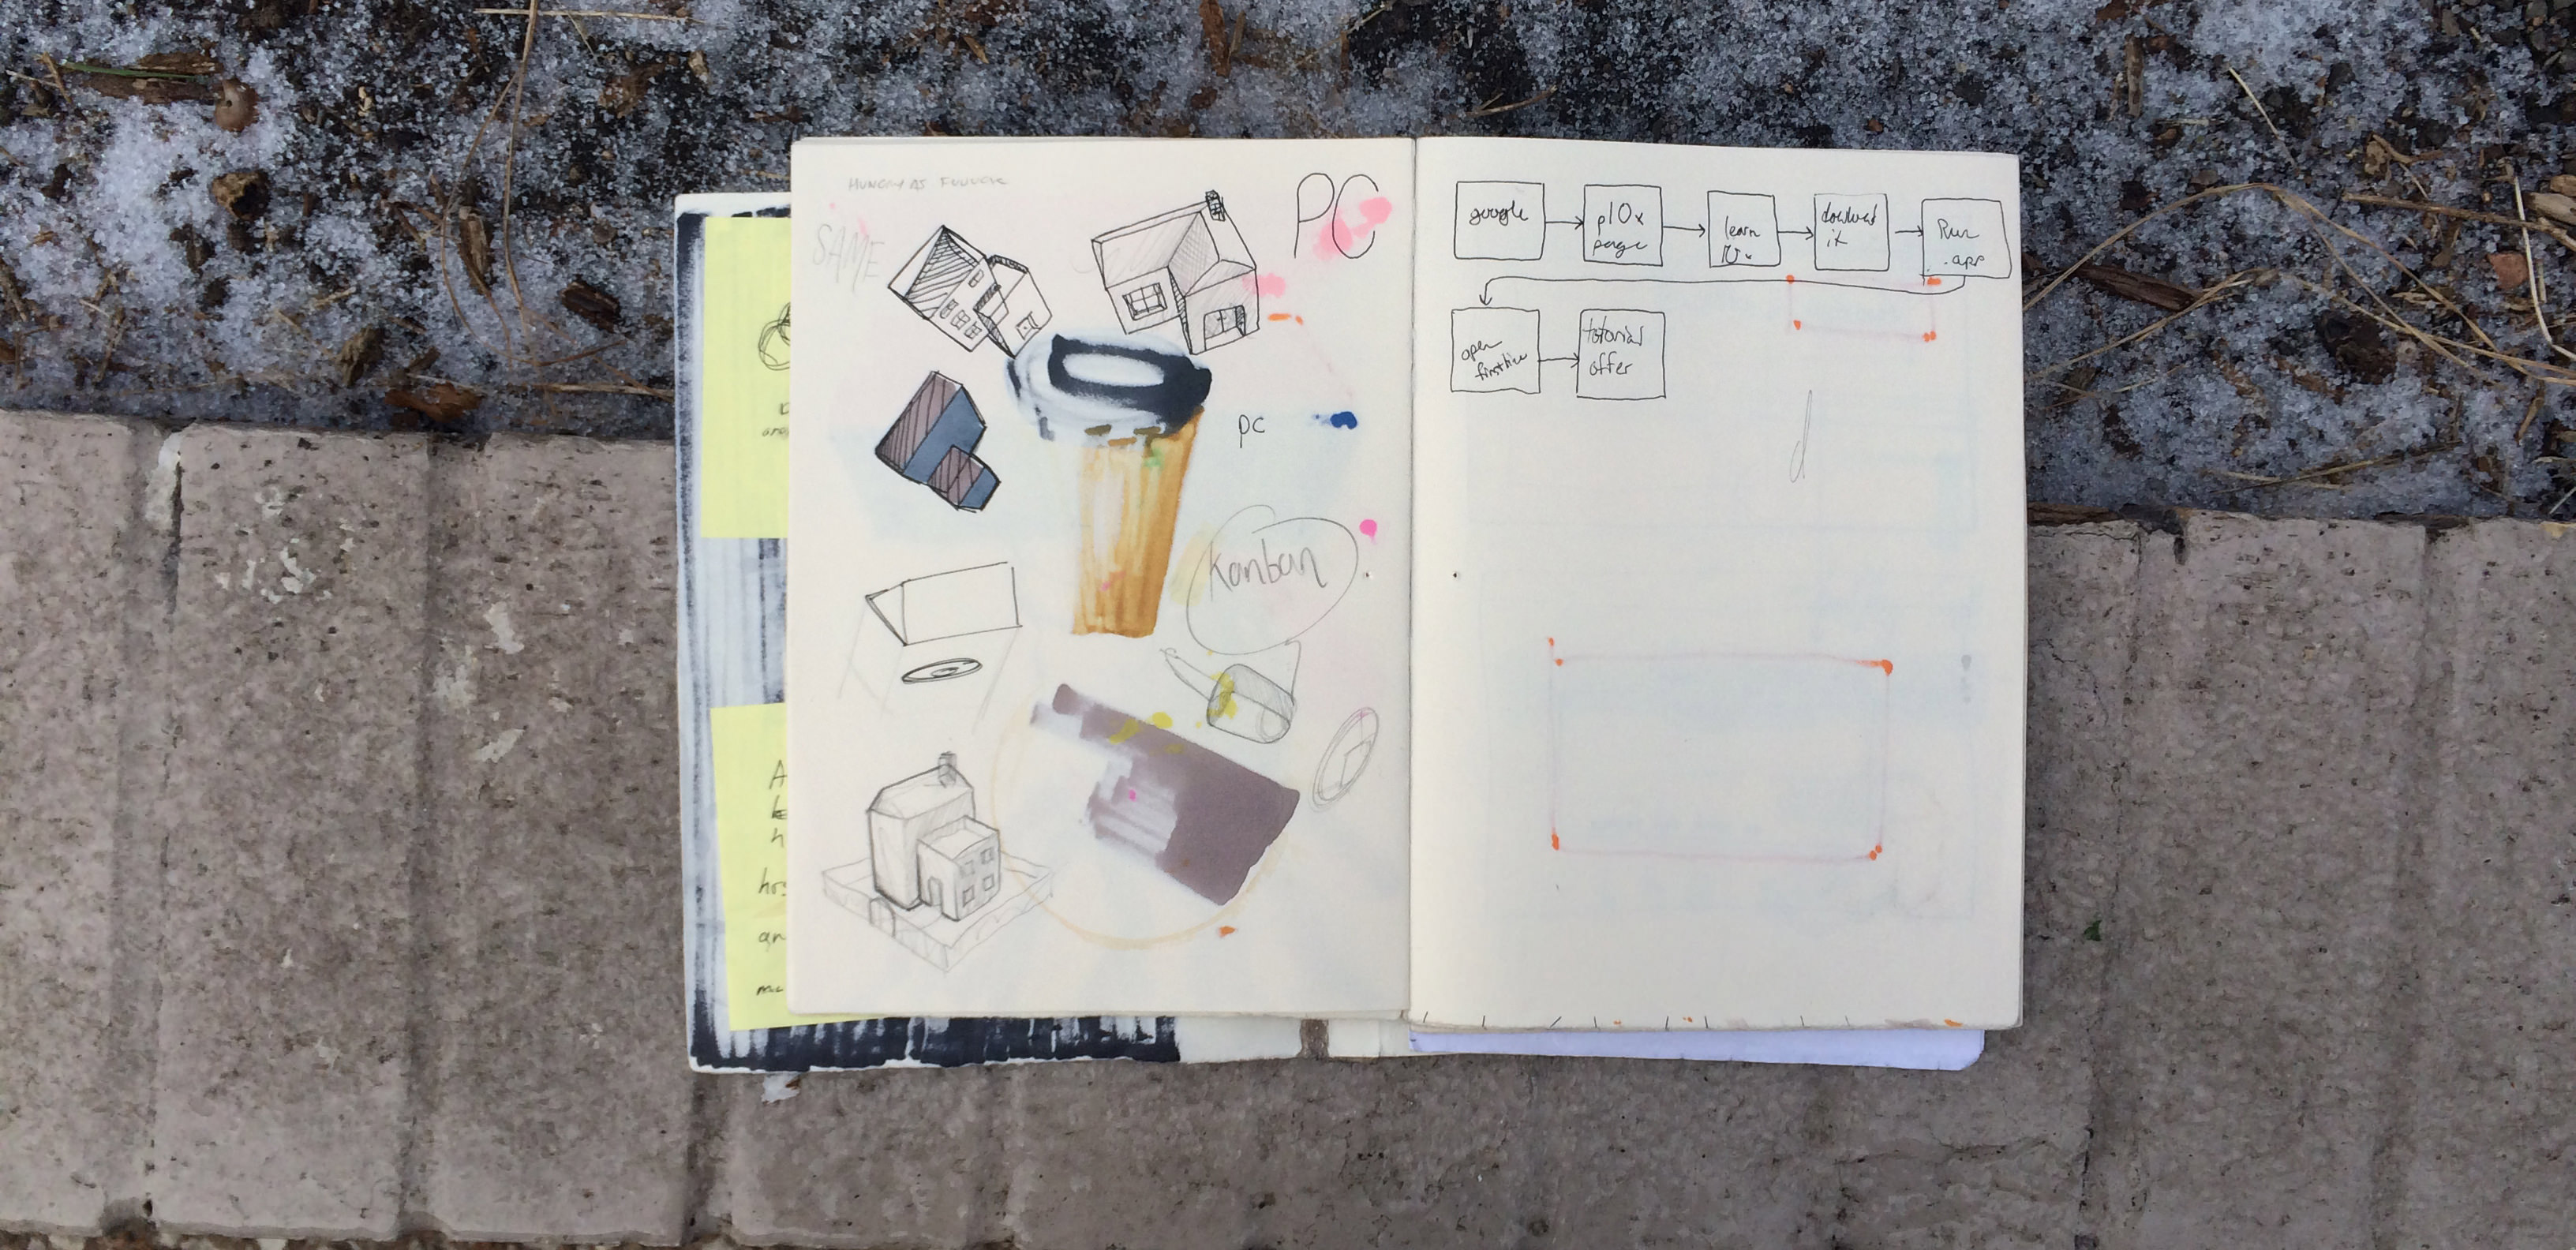 HUNGRY AS FUUUCK
SAME
PC
pc
Kanban
google
p10x
page
learn
download
it
Run
.app
open
first time
tutorial
offer
d